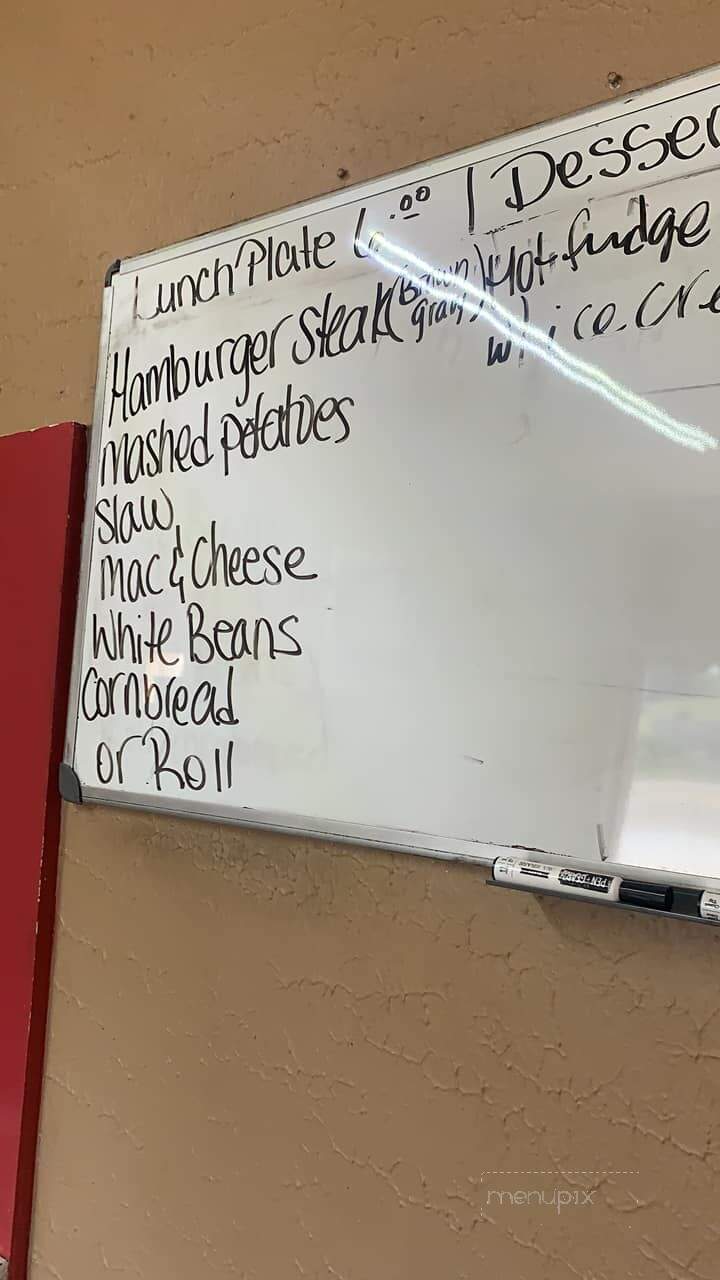 Lunch Plate 6.00 | Desser
Hamburger Steak (Brown gravy) Hot fudge
w/ ice cre
mashed potatoes
Slaw
mac & Cheese
White Beans
Cornbread
or Roll
PEN+GEAR
menupix